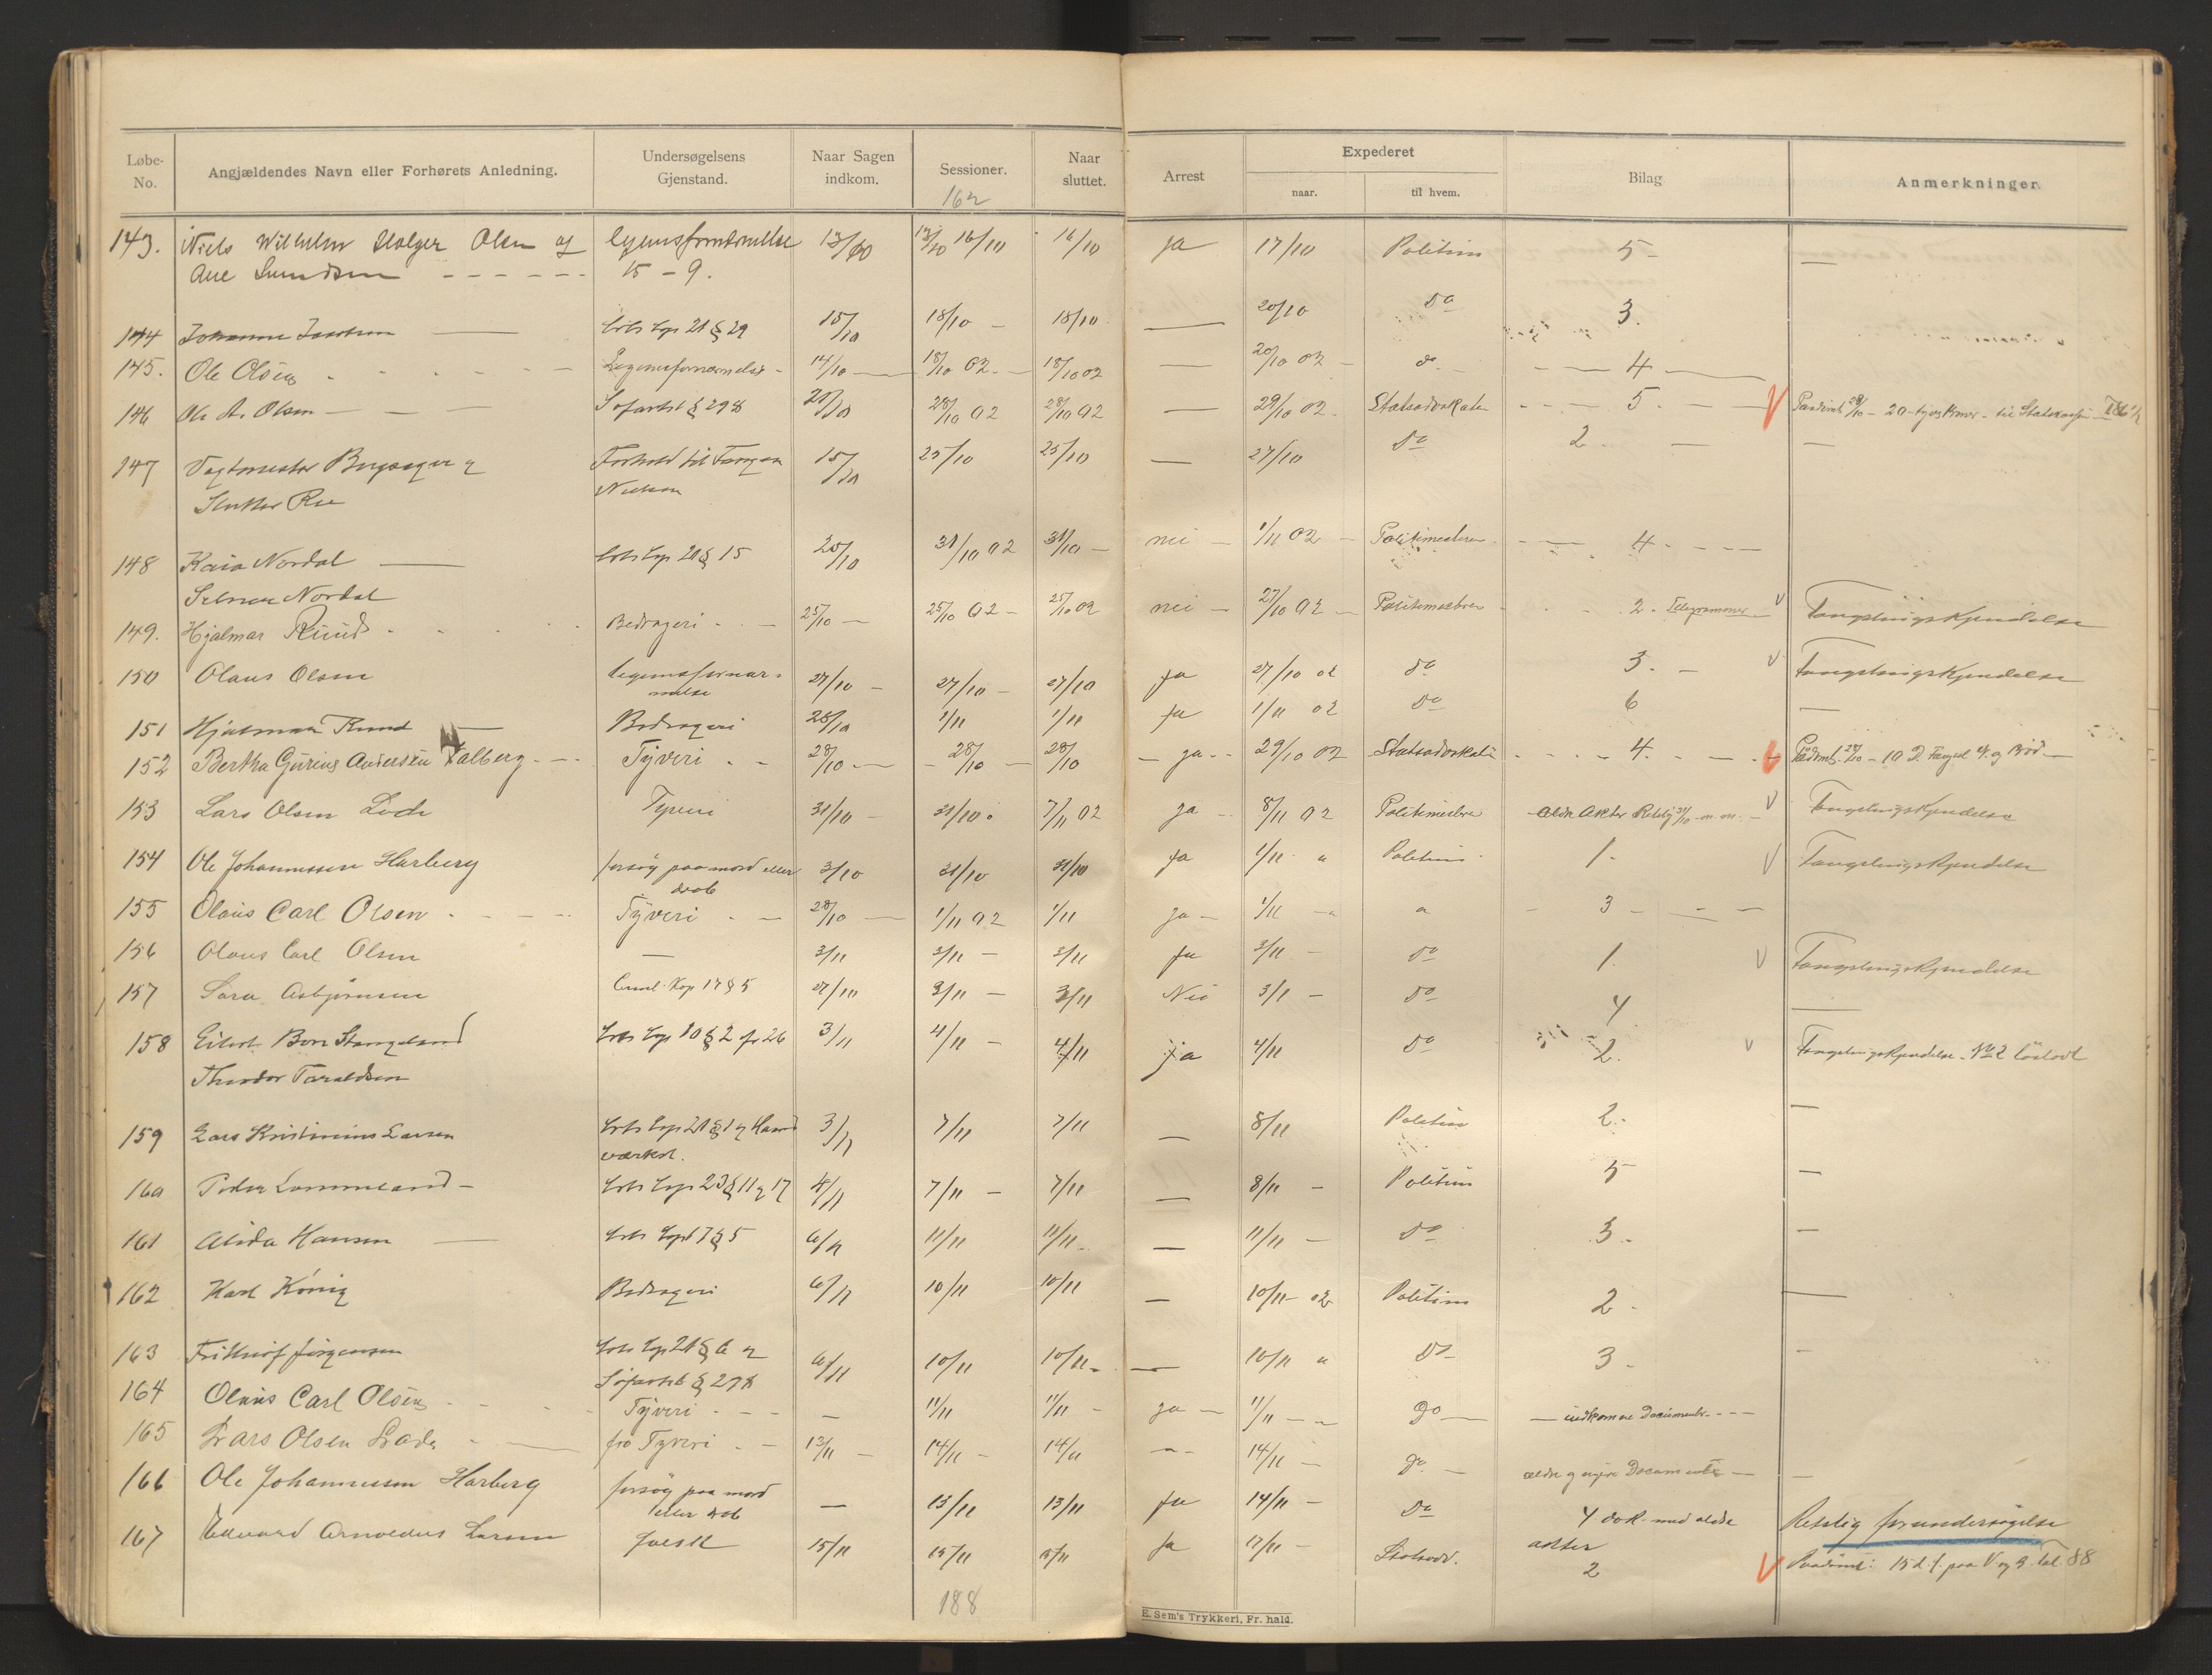 Løbe-No. Angjældendes Navn eller Forhørets Anledning. Undersøgelsens Gjenstand. Naar Sagen indkom. Sessioner. Naar sluttet. Arrest Expederet naar. til hvem. Bilag Anmerkninger.
162
143. Niels Wilhelm Holger Olsen og legemsfornærmelse 13/10 13/10 16/10 16/10 ja 17/10 Politiet 5 —
15 - 9.
144 Johanne Jacobsen — Crls Cap 21 § 29 15/10 18/10 — 18/10 — 20/10 Do 3.
145. Ole Olsen Legemsfornærmelse 14/10 — 18/10 02 — 18/10 02 — 20/10 02 — do — 4 —
146 Ole A. Olsen — § 298 28/10 02 28/10 02 — 29/10 02 Statsadvokaten 5 — V 28/10 — 20 — til Statskassen
147 Vagtmester og Forhold til Fangen 15/10 25/10 25/10 — 27/10 Do 2 — —
Slutter Nielsen
148 Kaia Nordal — Crls Cap 21 § 15 25/10 31/10 02 31/10 — nei — 1/11 02 — Politimesteren 4 —
Nordal
149. Hjalmar Ruud Bedrageri 25/10 — 25/10 02 — 25/10 02 nei — 27/10 02 — Politimesteren 2 Telegrammer V Fængslingskjendelse
150 Olaus Olsen legemsfornær- 27/10 — 27/10 — 27/10 ja 27/10 02 do 3. — V Fængslingskjendelse
melse
151 Hjalmar Ruud — Bedrageri 28/10 1/11 1/11 ja 1/11 02 Do 6 —
152 Bertha Gurine Andersen Valberg Tyveri 28/10 — 28/10 — 28/10 — ja 29/10 02 Statsadvokaten 4. V 28/10 — 10 D. Fængsel V. og Brød —
153 Lars Olsen Lode Tyveri 31/10 — 31/10 7/11 02 ja 8/11 02 Politimesteren V Fængslingskjendelse
154 Ole Johannessen Harberg forsøg paa mord eller 31/10 31/10 ja 1/11 " Politiet 1. V Fængslingskjendelse
drab
155 Olaus Carl Olsen Tyveri 28/10 — 1/11 02 1/11 ja — 1/11 — " " 3 —
156 Olaus Carl Olsen — 3/11 3/11 — 3/11 ja 3/11 — Do 1. V Fængslingskjendelse
157 Sara Asbjørnsen Crml. Kap 17 § 5 27/10 3/11 — 3/11 Nei 3/11 — Do 4 —
158 Eilert Stangeland Crls Cap 10 § 2 26 3/11 4/11 — 4/11 ja 4/11 Do 2. V Fængslingskjendelse. No 2 løsladt
Theodor Taraldsen
159 Lars Kristinius Larsen Crls Cap 21 § 1 og Haand 3/11 7/11 7/11 — 8/11 Politiet 2. —
værksl.
160 Peder — Crls Cap 23 § 11 og 17 4/11 7/11 — 7/11 — 8/11 — Politiet 5 —
161 Alida Hansen — Crls Cap 17 § 5 6/11 11/11 11/11 — 11/11 — Do 3 —
162 Karl König Bedrageri 6/11 10/11 10/11 — 10/11 02 Politiet 2 —
163 Frithiof Jørgensen Crls Cap 21 § 6 og 6/11 10/11 10/11 — 10/11 " Do 3 —
164 Olaus Carl Olsen Tyveri — 11/11 11/11 — ja — 11/11 — " Do — — indkomne Documenter —
165 Lars Olsen Lode Tyveri 13/11 — 14/11 — 14/11 " 14/11 — Do — ældre og nyere Documenter — —
166 Ole Johannessen Harberg forsøg paa mord — 13/11 13/11 ja 14/11 — Do 4 dok. med ældre Retslig forundersøgelse
eller drab akter
167 Edward Arnoldus Larsen falsk 15/11 15/11 15/11 ja 17/11 — Statsadv. 2 V 15 d. f. paa V og B. 88
188
E. Sem's Trykkeri, Fr. hald.